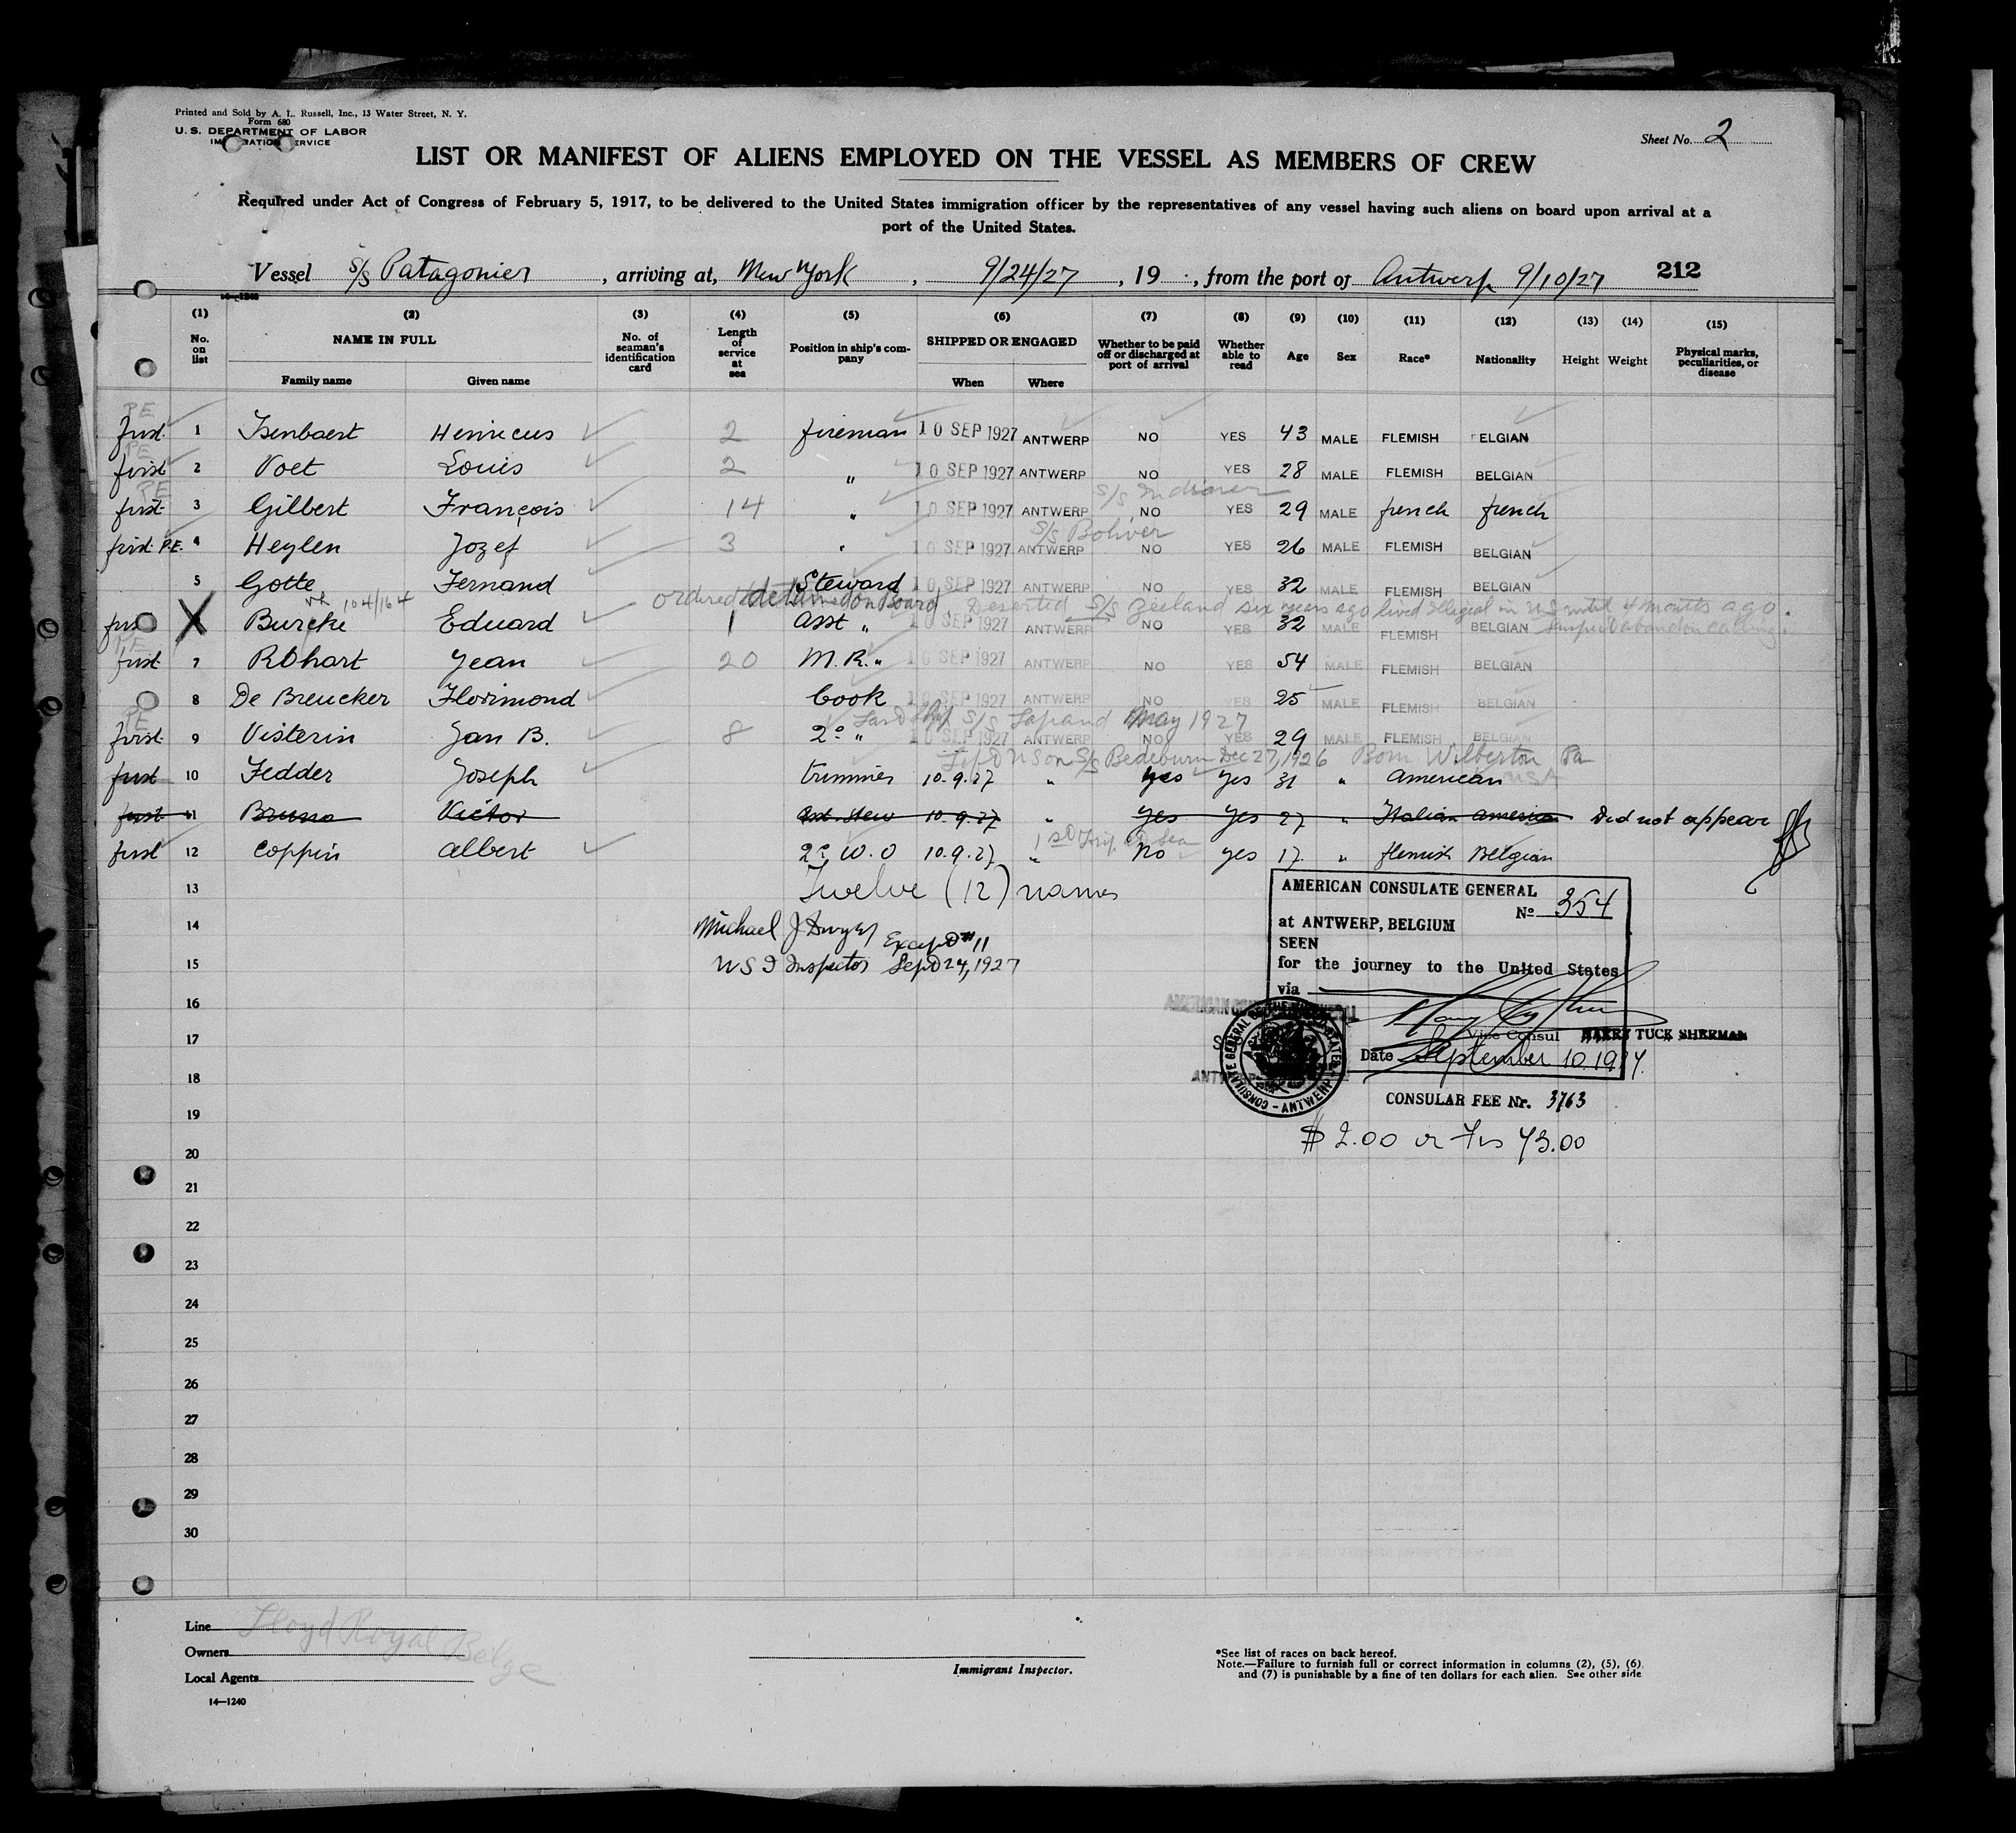 Printed and Sold by A. L. Russell, Inc., 13 Water Street, N. Y.
Form 680
U. S. DEPARTMENT OF LABOR
IMMIGRATION SERVICE
Sheet No. 2
LIST OR MANIFEST OF ALIENS EMPLOYED ON THE VESSEL AS MEMBERS OF CREW
Required under Act of Congress of February 5, 1917, to be delivered to the United States immigration officer by the representatives of any vessel having such aliens on board upon arrival at a
port of the United States.
Vessel S/S Patagonier, arriving at, New York, 9/24/27, 19, from the port of Antwerp 9/10/27 212
14-1240
(1) (2) (3) (4) (5) (6) (7) (8) (9) (10) (11) (12) (13) (14) (15)
No. on list NAME IN FULL No. of seaman's identification card Length of service at sea Position in ship's company SHIPPED OR ENGAGED Whether to be paid off or discharged at port of arrival Whether able to read Age Sex Race* Nationality Height Weight Physical marks, peculiarities, or disease
Family name Given name When Where
PE
first 1 Isenbaert Henricus 2 fireman 10 SEP 1927 ANTWERP NO YES 43 MALE FLEMISH ELGIAN
PE
first 2 Voet Louis 2 " 10 SEP 1927 ANTWERP NO YES 28 MALE FLEMISH BELGIAN
PE S/S
first 3 Gilbert François 14 " 10 SEP 1927 ANTWERP NO YES 29 MALE french french
S/S Boliver
first P.E. 4 Heylen Jozef 3 " 10 SEP 1927 ANTWERP NO YES 26 MALE FLEMISH BELGIAN
5 Gotte Fernand Steward 10 SEP 1927 ANTWERP NO YES 32 MALE FLEMISH BELGIAN
104/164 ordered detained on Board. Deserted S/S Zeeland six years ago lived illegal in US until 4 months ago.
first X Burcke Eduard 1 asst " 10 SEP 1927 ANTWERP NO YES 32 MALE FLEMISH BELGIAN
PE
first 7 Rohart Jean 20 M.R. " 10 SEP 1927 ANTWERP NO YES 54 MALE FLEMISH BELGIAN
8 De Breucker Florimond Cook 10 SEP 1927 ANTWERP NO YES 25 MALE FLEMISH BELGIAN
PE S/S Lapland May 1927
first 9 Visterin Jan B. 8 2º " 10 SEP 1927 ANTWERP NO YES 29 MALE FLEMISH BELGIAN
S/S Bedeburn Dec 27, 1926 Born Wilberton Pa
first 10 Fedder Joseph trimmer 10.9.27 " yes yes 31 " American USA
first 11 Bruno Victor Ast Stew 10.9.27 " yes yes 27 " Italian America Did not appear
1st Trip at Sea
first 12 Coppin Albert 2º W.O 10.9.27 " No yes 17 " flemish Belgian
13 Twelve (12) names
14 Michael J Dwyer
Except #11
15 U S I Inspector Sept 24, 1927
16
17
18
19
20
21
22
23
24
25
26
27
28
29
30
AMERICAN CONSULATE GENERAL
Nº 354
at ANTWERP, BELGIUM
SEEN
for the journey to the United States
via
Vice Consul HARRY TUCK SHERMAN
Date September 10. 1927.
CONSULAR FEE Nr. 3763
$ 2.00 or Frs 73.00
Line Lloyd Royal Belge
Owners
Local Agents
14—1240
Immigrant Inspector.
*See list of races on back hereof.
Note.—Failure to furnish full or correct information in columns (2), (5), (6)
and (7) is punishable by a fine of ten dollars for each alien. See other side